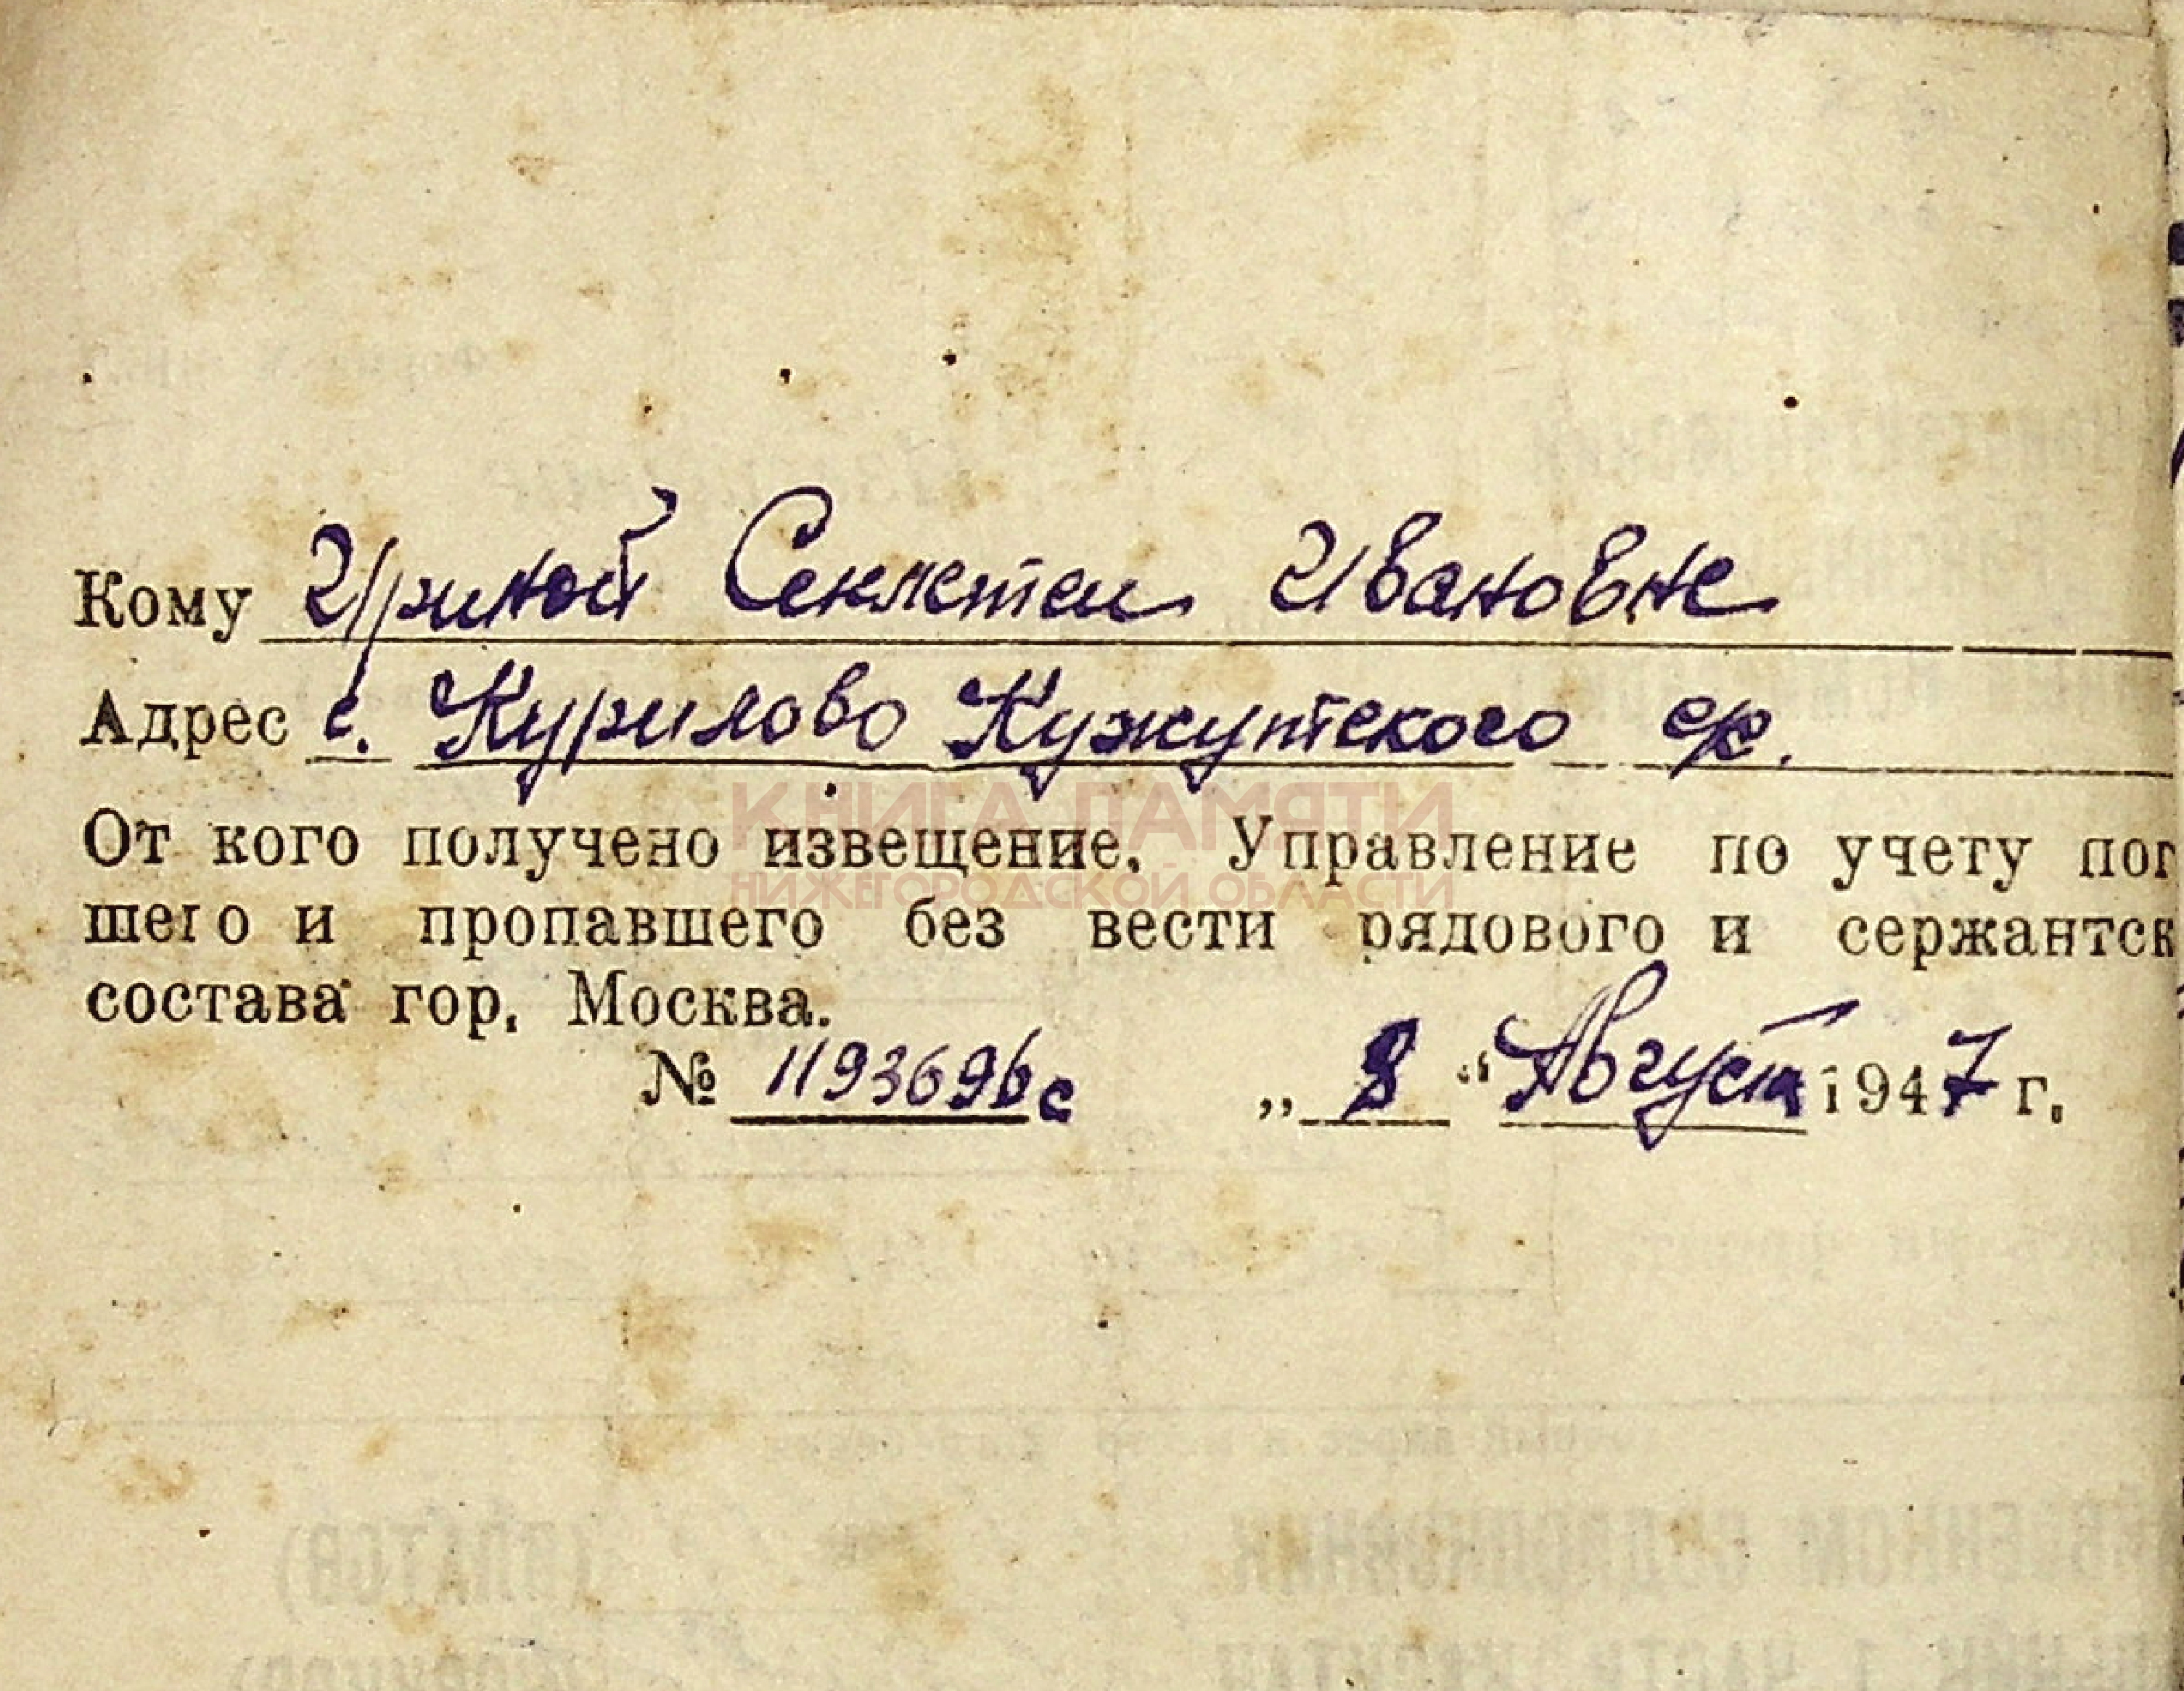 Кому Уриной Секлетеи Ивановне
Адрес с. Курилово Кужутского с/с.
КНИГА ПАМЯТИ
НИЖЕГОРОДСКОЙ ОБЛАСТИ
От кого получено извещение. Управление по учету пог
шего и пропавшего без вести рядового и сержантск
состава гор. Москва.
№ 1193696с „8“ Август 1947 г.